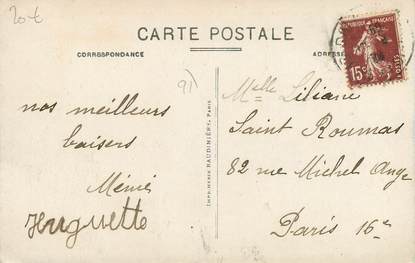 20€
CARTE POSTALE
CORRESPONDANCE
ADRESSE
RÉPUBLIQUE FRANÇAISE
15c
POSTES
91
nos meilleurs
baisers
Mémé
Huguette
IMPRIMERIE BAUDINIÈRE, PARIS
Melle Liliane
Saint Roumas
82 rue Michel Ange
Paris 16e